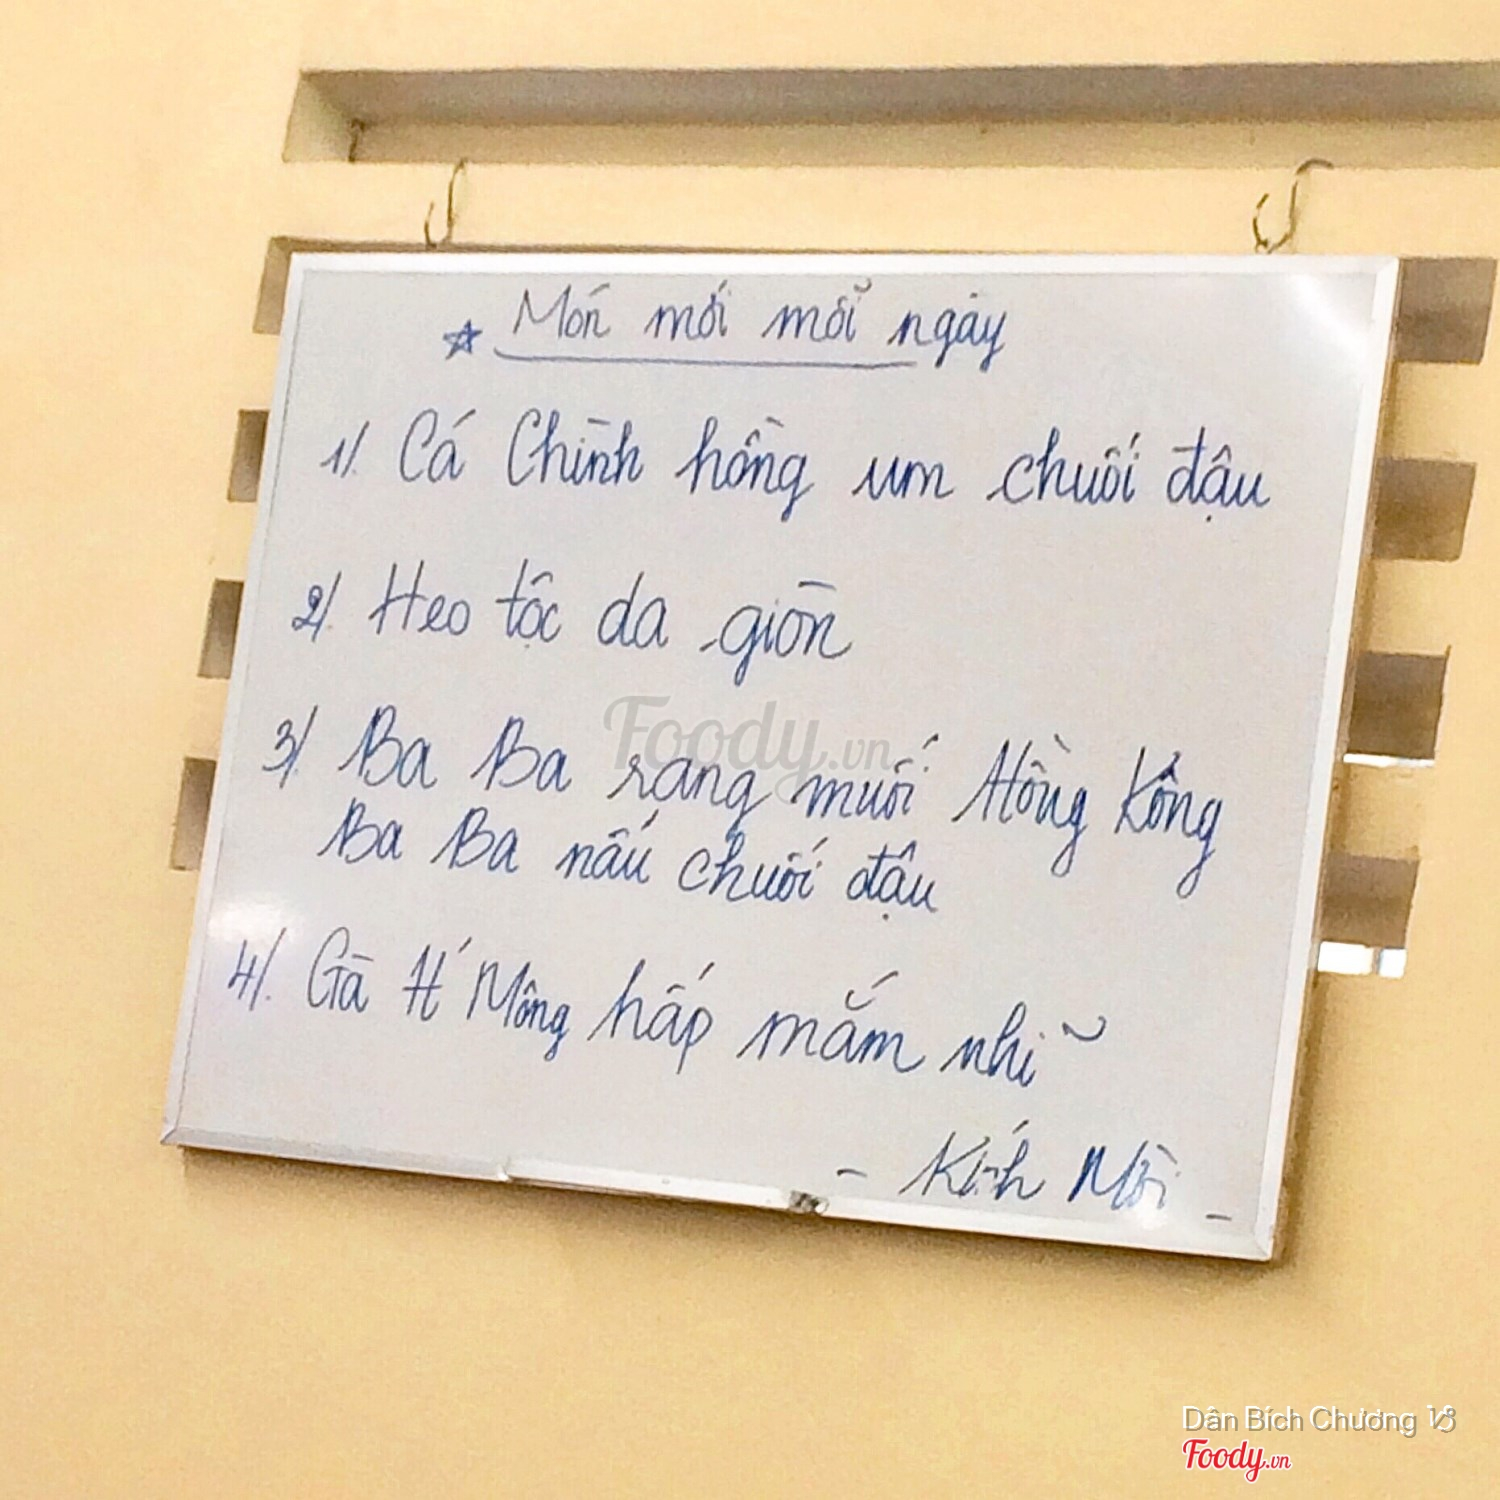 ☆ Món mới mỗi ngày
1/. Cá Chình hồng um chuối đậu
2/. Heo tộc da giòn
3/. Ba Ba rang muối Hồng Kông
Ba Ba nấu chuối đậu
4/. Gà H'Mông hấp mắm nhĩ
- Kính Mời -
Foody.vn
Dân Bích Chương
Foody.vn